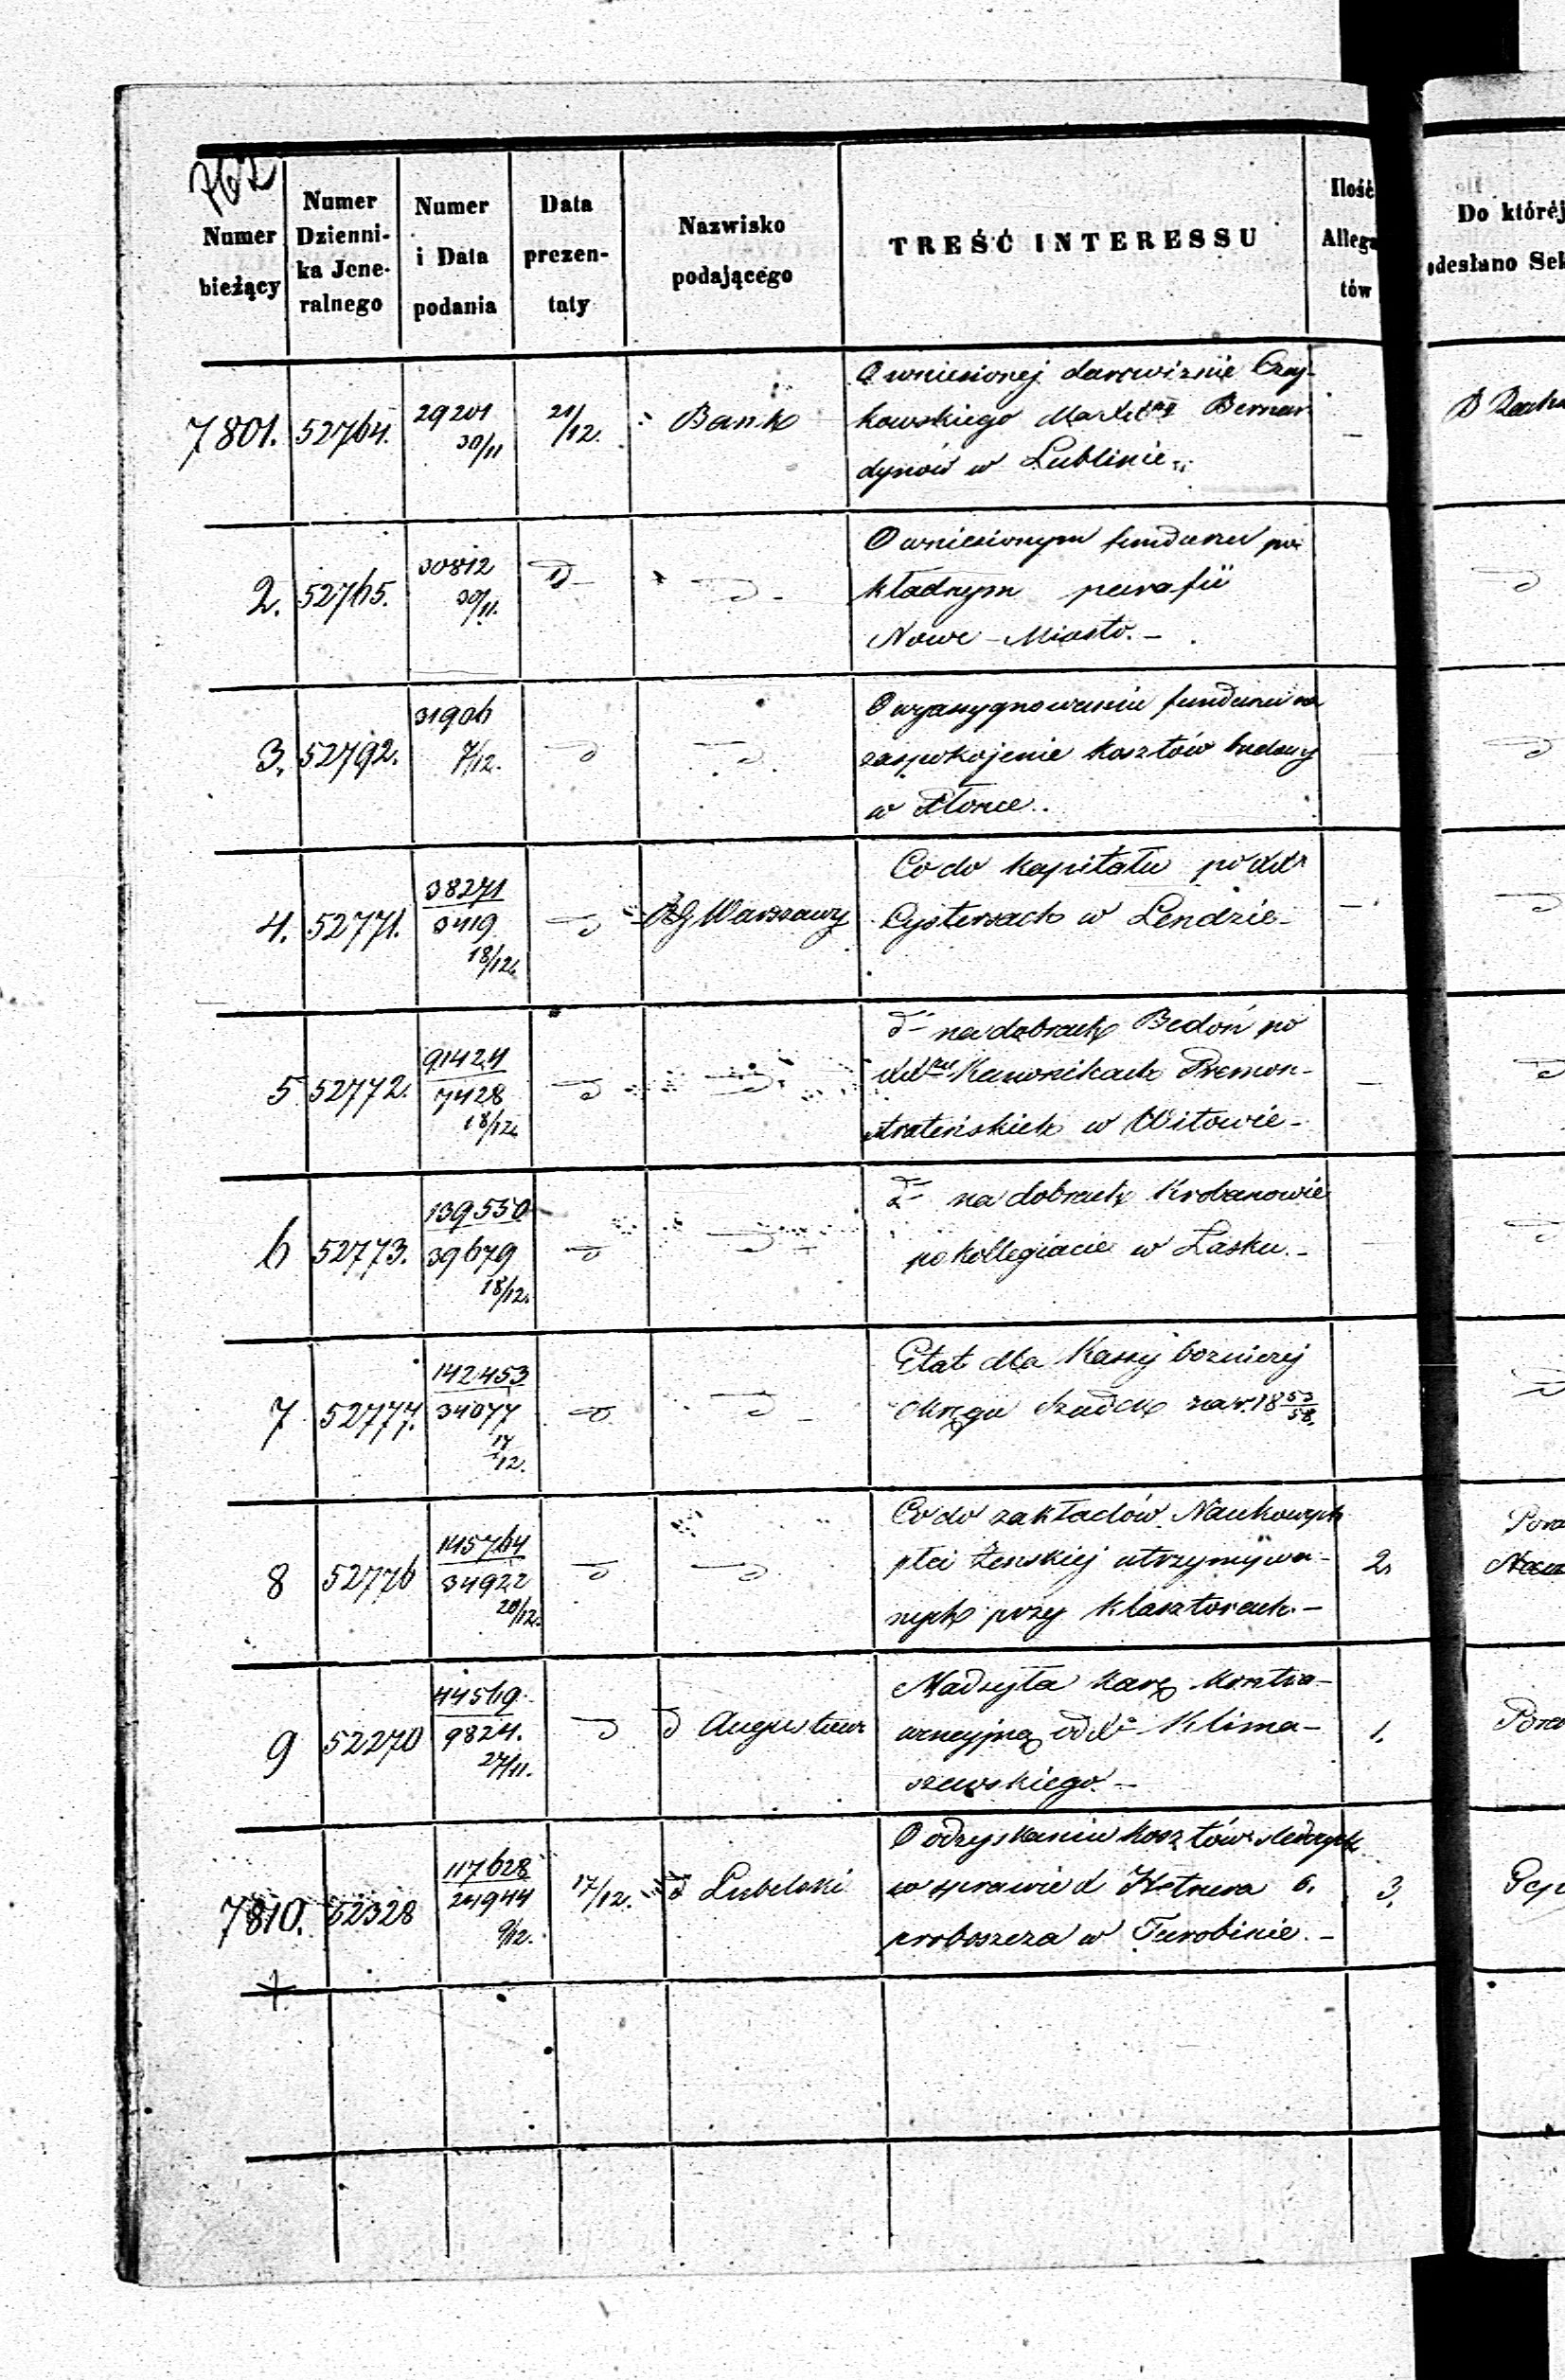 762
Numer bieżący
Numer Dzienni-ka Jene-ralnego
Numer i Data podania
Data prezen-taty
Nazwisko podającego
TREŚĆ INTERESSU
Ilość Allega tów
Do któréj odesłano Sek
7801. 52764. 29201 30/11 21/12. Bank
O wniesionej darowiznie Czaj-
kowskiego dla Bernar
dynów w Lublinie –
2. 52765. 30812 30/11. d –
O wniesionym funduszu po
kładnym parafii
Nowe-Miasto. –
3. 52792. 31906 7/12. d
O wyassygnowaniu funduszu na
zaspokojenie kosztów budowy
w Płonce.
4. 52771. 38271 3419 18/12. d RG Warszawy
Co do kapitału po
Cystersach w Lendzie – –
5 52772. 91424 7428 18/12. d
d° na dobrach Bedoń po
Kanonikach Premon-
strateńskich w Witowie – –
6 52773. 139550 39679 18/12. d
d° na dobrach Krobanowie
po kollegiacie w Łasku. –
7 52777. 142453 34077 17/12. d
Etat dla Kassy bozniczej
okręgu Szadek za r. 18 53/58.
8 52776 145764 34922 20/12. d
Co do zakładów Naukowych
płci żenskiej utrzymywa- 2.
nych przy klasztorach. –
9 52270 44569 9824. 27/11. d d Augustow
Nadsyła karę kontra-
wencyjną od Xa Klima- 1.
szewskiego. –
7810. 52328 117628 24944 9/12. 17/12. d Lubelski
O odzyskaniu kosztów śledczych
w sprawie X b. 3.
proboszcza w Turobinie. –